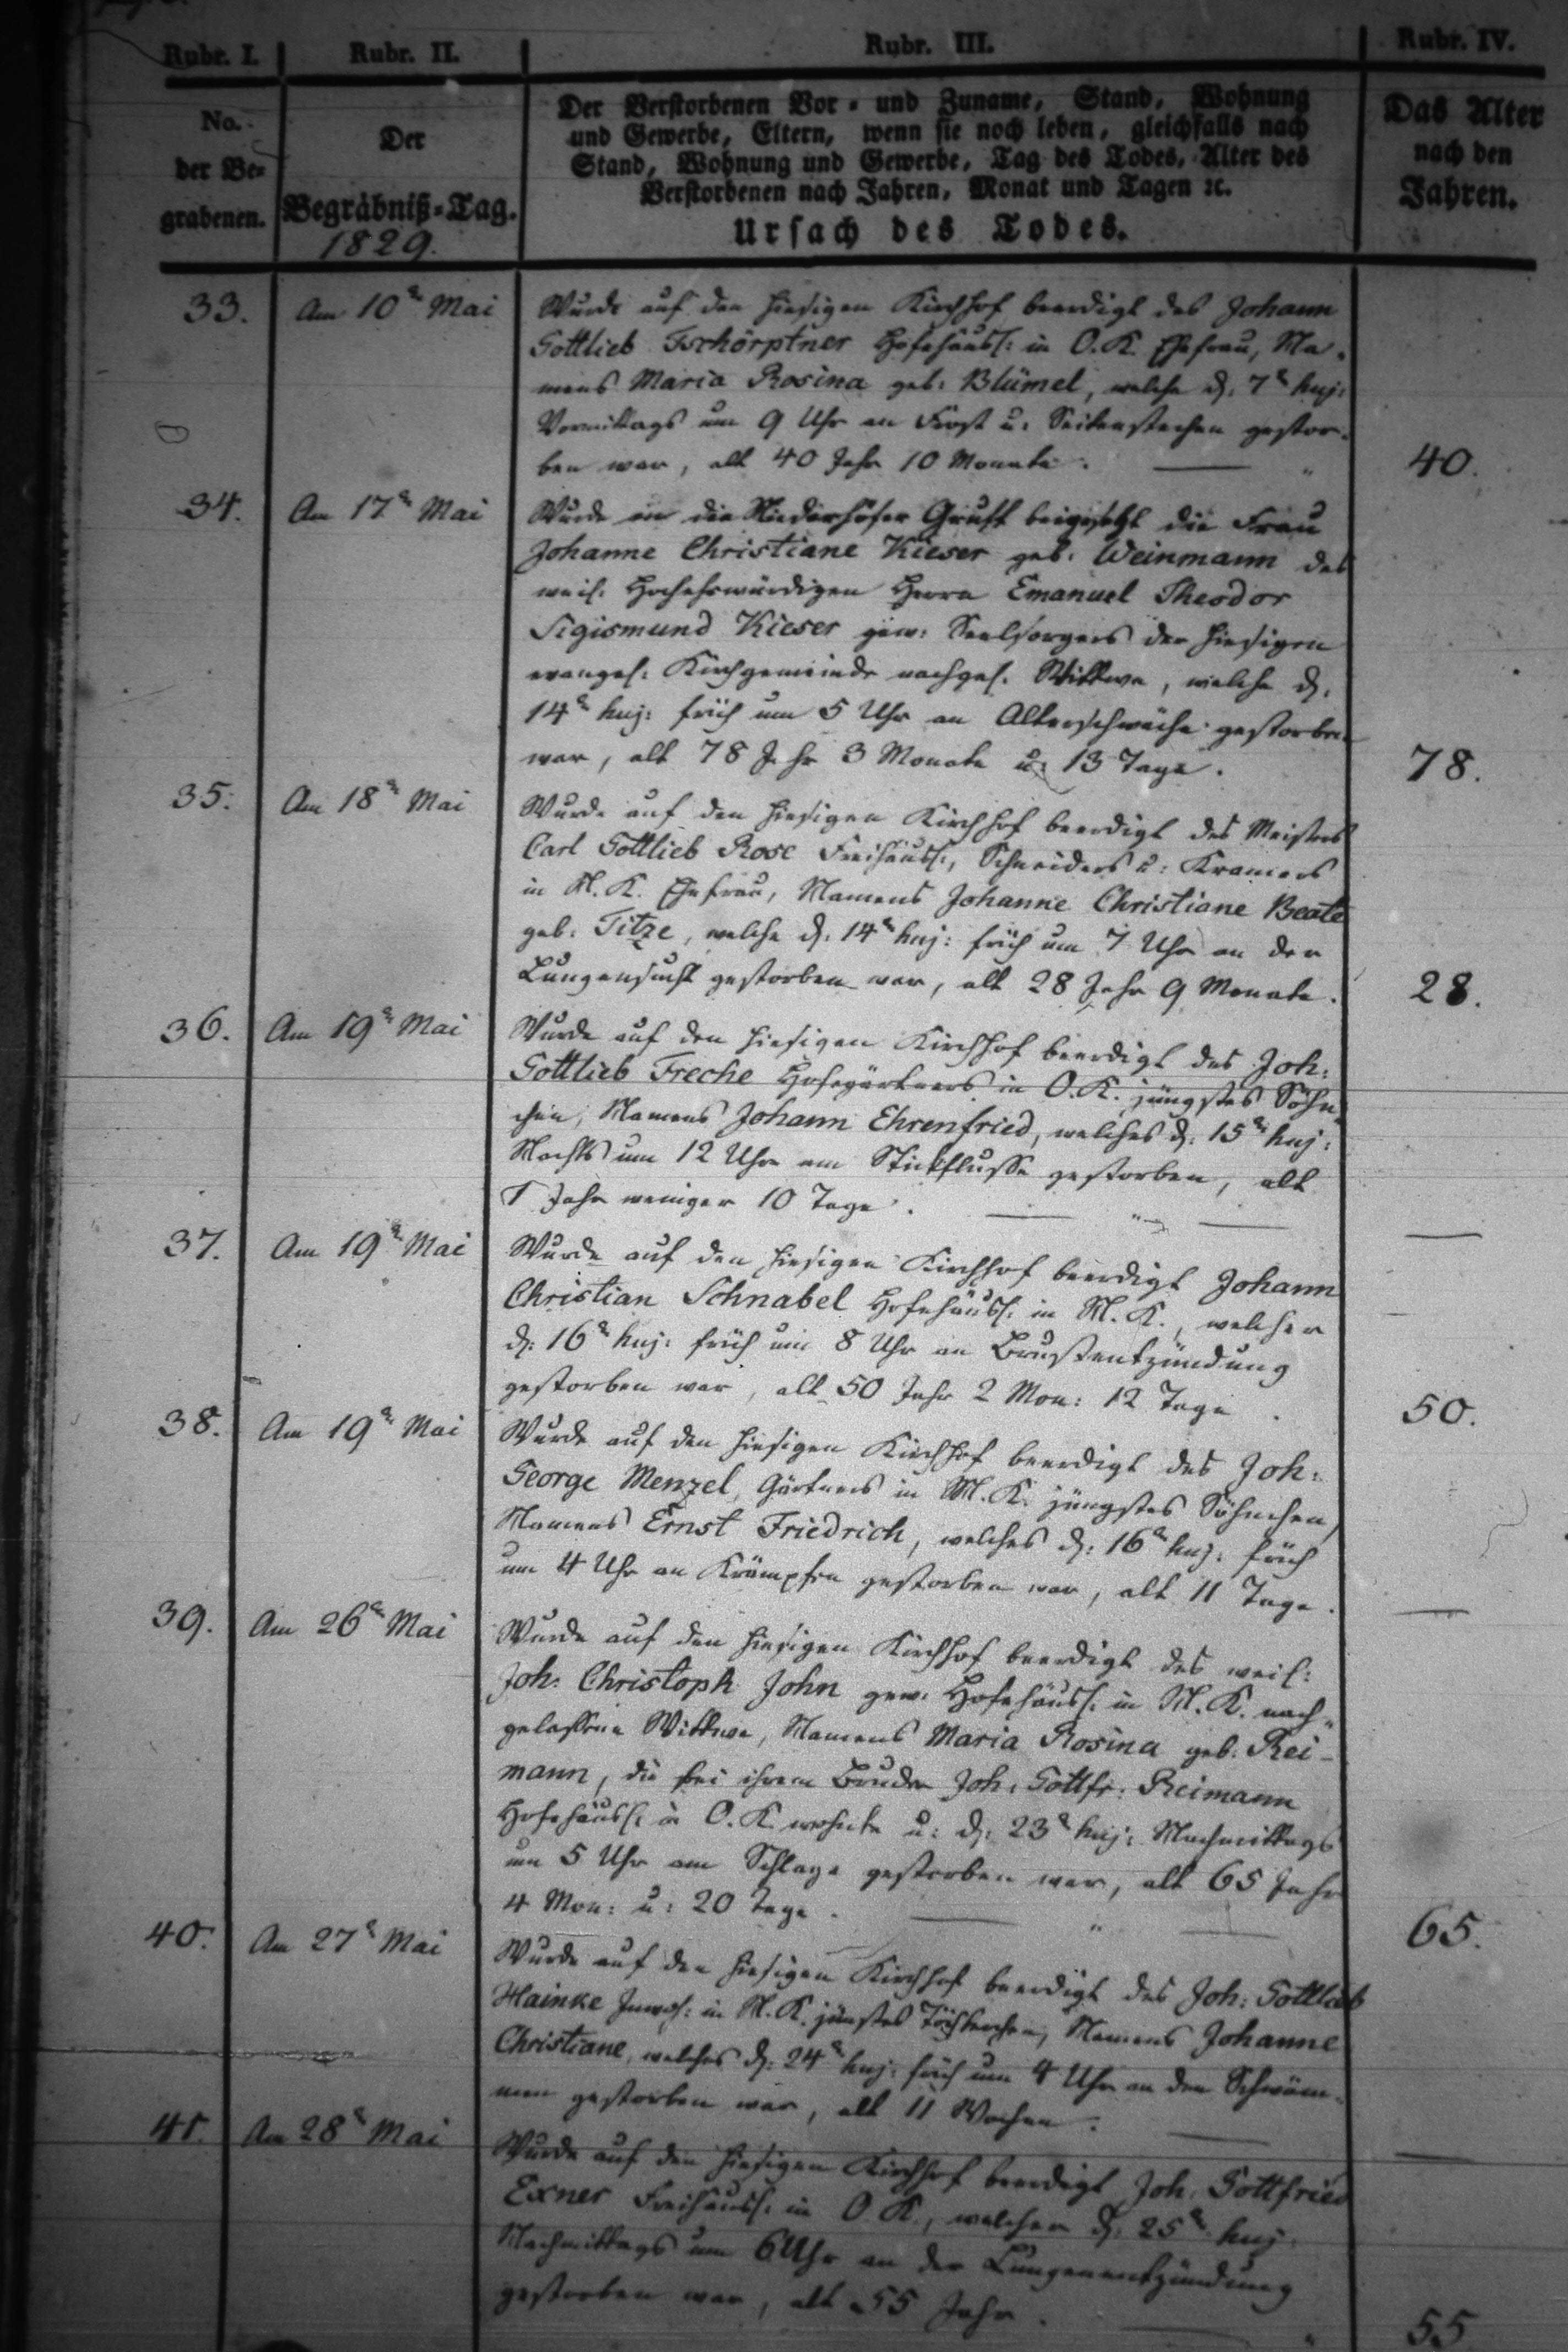 Rubr. I. Rubr. II. Rubr. III. Rubr. IV.
No. der Begrabenen.
Der Begräbniß-Tag.
1829.
Der Verstorbenen Vor- und Zuname, Stand, Wohnung
und Gewerbe, Eltern, wenn sie noch leben, gleichfalls nach
Stand, Wohnung und Gewerbe, Tag des Todes, Alter des
Verstorbenen nach Jahren, Monat und Tagen ꝛc.
Ursach des Todes.
Das Alter
nach den
Jahren.
33. Am 10ᵗ Mai Wurde auf den hiesigen Kirchhof beerdigt des Johann
Gottlieb Tschörptner Hofehäusl: in O. K. Ehefrau, Na-
mens Maria Rosina geb: Blümel, welche d: 7ᵗ huj:
Vormittags um 9 Uhr an Frost u: Seitenstechen gestor-
ben war, alt 40 Jahr 10 Monate. 40.
34. Am 17ᵗ Mai Wurde in die Niederhöfer Gruft beigesetzt die Frau
Johanne Christiane Kieser geb: Weinmann des
weil: Hochehrwürdigen Herrn Emanuel Theodor
Sigismund Kieser gew: Seelsorgers der hiesigen
evangel: Kirchgemeinde nachgel. Wittwe, welche d:
14ᵗ huj: früh um 5 Uhr an Altersschwäche gestorben
war, alt 78 Jahr 3 Monate u: 13 Tage. 78.
35. Am 18ᵗ Mai Wurde auf den hiesigen Kirchhof beerdigt des Meisters
Carl Gottlieb Rose Freihäusl:, Schneiders u: Kramers
in N. K. Ehefrau, Namens Johanne Christiane Beate
geb: Titze, welche d: 14ᵗ huj: früh um 7 Uhr an der
Lungensucht gestorben war, alt 28 Jahr 9 Monate. 28.
36. Am 19ᵗ Mai Wurde auf den hiesigen Kirchhof beerdigt des Joh:
Gottlieb Freche Hofegärtners in O. K. jüngstes Söhn-
chen, Namens Johann Ehrenfried, welches d: 15ᵗ huj:
Nachts um 12 Uhr am Stickflusse gestorben, alt
1 Jahr weniger 10 Tage. —
37. Am 19ᵗ Mai Wurde auf den hiesigen Kirchhof beerdigt Johann
Christian Schnabel Hofehäusl: in N. K., welcher
d: 16ᵗ huj: früh um 8 Uhr an Brustentzündung
gestorben war, alt 50 Jahr 2 Mon: 12 Tage. 50.
38. Am 19ᵗ Mai Wurde auf den hiesigen Kirchhof beerdigt des Joh:
George Menzel, Gärtners in M. K. jüngstes Söhnchen,
Namens Ernst Friedrich, welches d: 16ᵗ huj: früh
um 4 Uhr an Krämpfen gestorben war, alt 11 Tage. —
39. Am 26ᵗ Mai Wurde auf den hiesigen Kirchhof beerdigt des weil:
Joh: Christoph John gew: Hofehäusl: in N. K. nach-
gelassene Wittwe, Namens Maria Rosina geb: Rei-
mann, die bei ihrem Bruder Joh: Gottfr: Reimann
Hofehäusl: in O. K. wohnte u: d: 23ᵗ huj: Nachmittags
um 5 Uhr am Schlage gestorben war, alt 65 Jahr
4 Mon: u: 20 Tage. 65.
40. Am 27ᵗ Mai Wurde auf den hiesigen Kirchhof beerdigt des Joh: Gottlieb
Hainke Inwoh: in N. K. jüngstes Töchterchen, Namens Johanne
Christiane, welches d: 24ᵗ huj: früh um 4 Uhr an den Schwäm-
men gestorben war, alt 11 Wochen. —
41. Am 28ᵗ Mai Wurde auf den hiesigen Kirchhof beerdigt Joh: Gottfried
Exner Freihäusl: in O. K., welcher d: 25ᵗ huj:
Nachmittags um 6 Uhr an der Lungenentzündung
gestorben war, alt 55 Jahr. 55